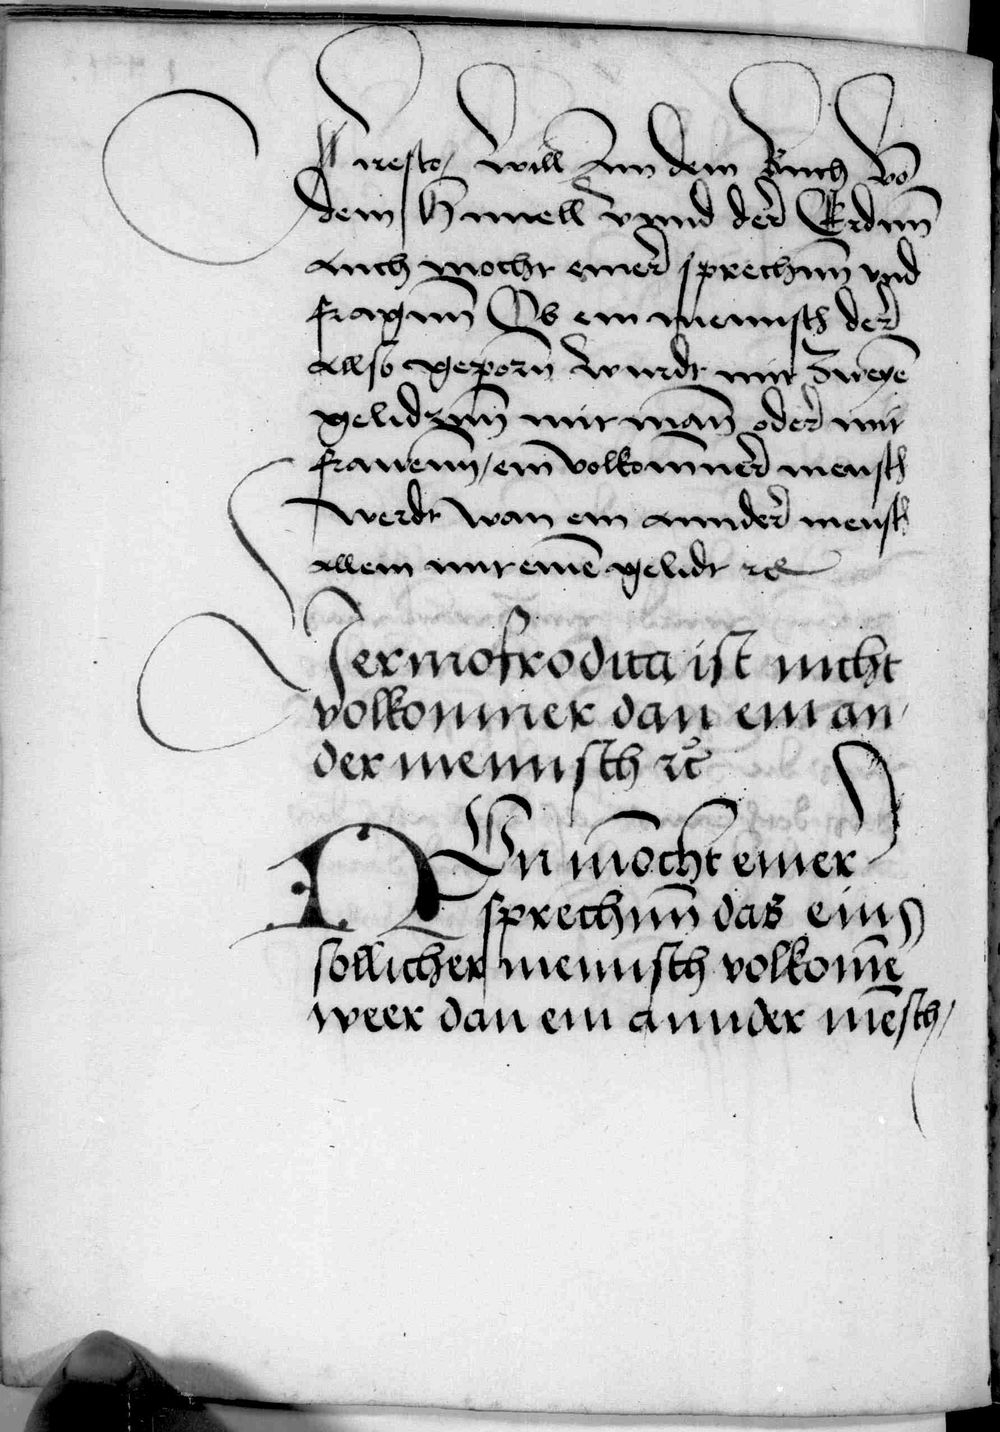 Aresto, will Inn dem Buch vō
dem Himell vnnd der Erdnn̄
auch mocht einer sprechnn̄ vnd
fragnn̄ Ob ein mennsch der
allso geporn̄ wurdt mit Zweyē
gelidznn̄ mit mān oder mit
frawenn̄, ein volkom̄ner mensch
werdt wan ein annder mensch
allein mit einē gelidt ꝛc
Hermofrodita ist nicht
volkommer dan ein an
der mennsch ꝛc̄
NUn mocht einer
sprechnn̄ das ein
sollicher mennsch volkom̄e
weer dan ein annder mēsch,